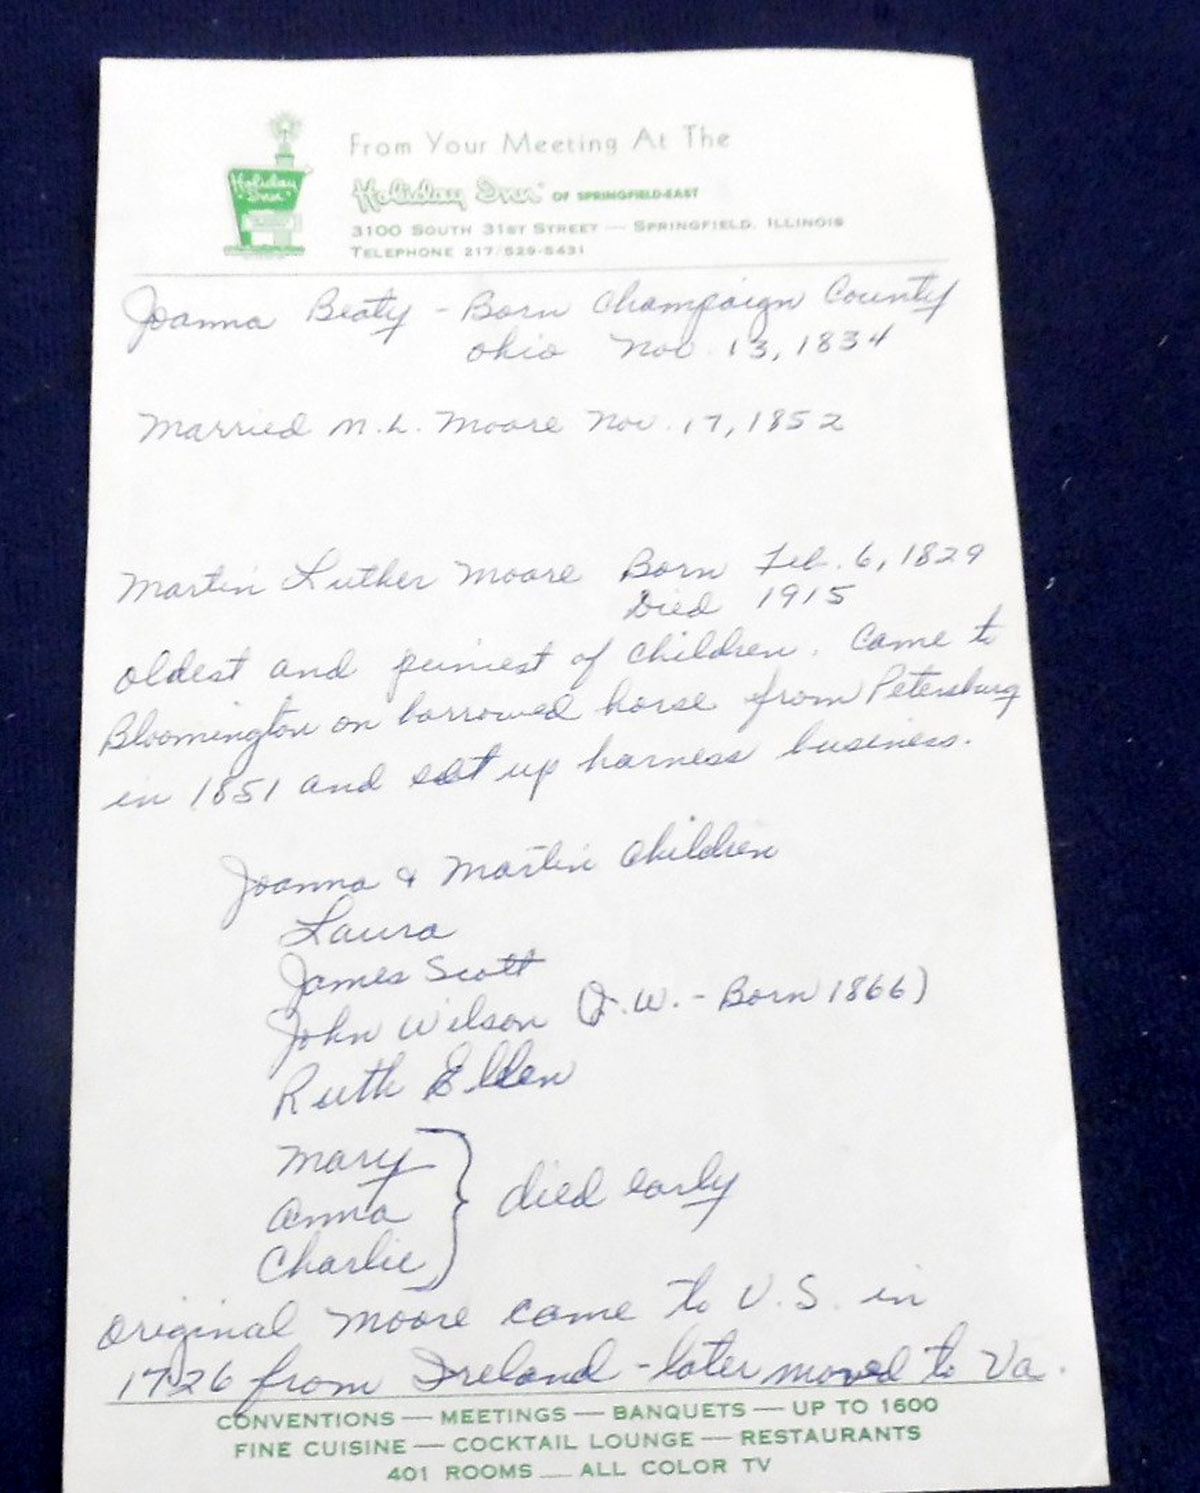 Holiday Inn
From Your Meeting At The
Holiday Inn OF SPRINGFIELD-EAST
3100 SOUTH 31ST STREET — SPRINGFIELD, ILLINOIS
TELEPHONE 217/529-5431
Joanna Beaty - Born Champaign County
Ohio Nov. 13, 1834
Married M.L. Moore Nov. 17, 1852
Martin Luther Moore Born Feb. 6, 1829
Died 1915
oldest and puniest of children. Came to
Bloomington on borrowed horse from Petersburg
in 1851 and set up harness business.
Joanna & Martin Children
Laura
James Scott
John Wilson (J.W. - Born 1866)
Ruth Ellen
Mary
Anna } died early
Charlie
Original Moore came to U.S. in
1726 from Ireland - later moved to Va.
CONVENTIONS — MEETINGS — BANQUETS — UP TO 1600
FINE CUISINE — COCKTAIL LOUNGE — RESTAURANTS
401 ROOMS — ALL COLOR TV